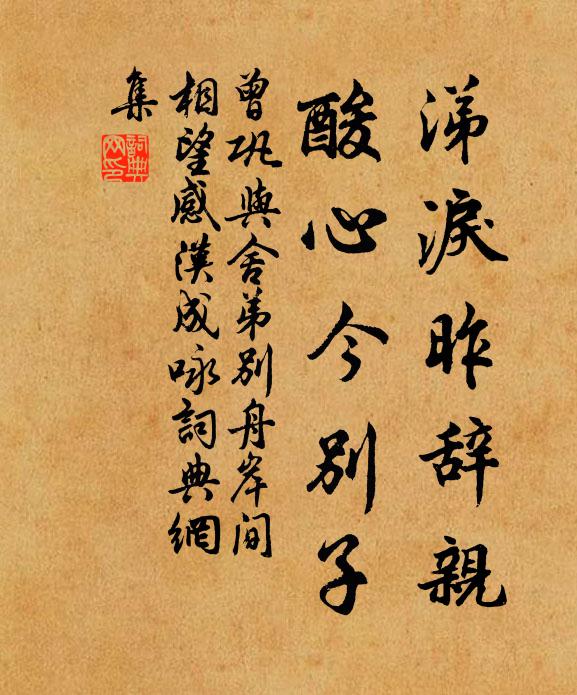 涕淚昨辞親
酸心今别子
曾巩與舍弟别舟岸間
相望感漢成咏詞典網
集
詞典
网印